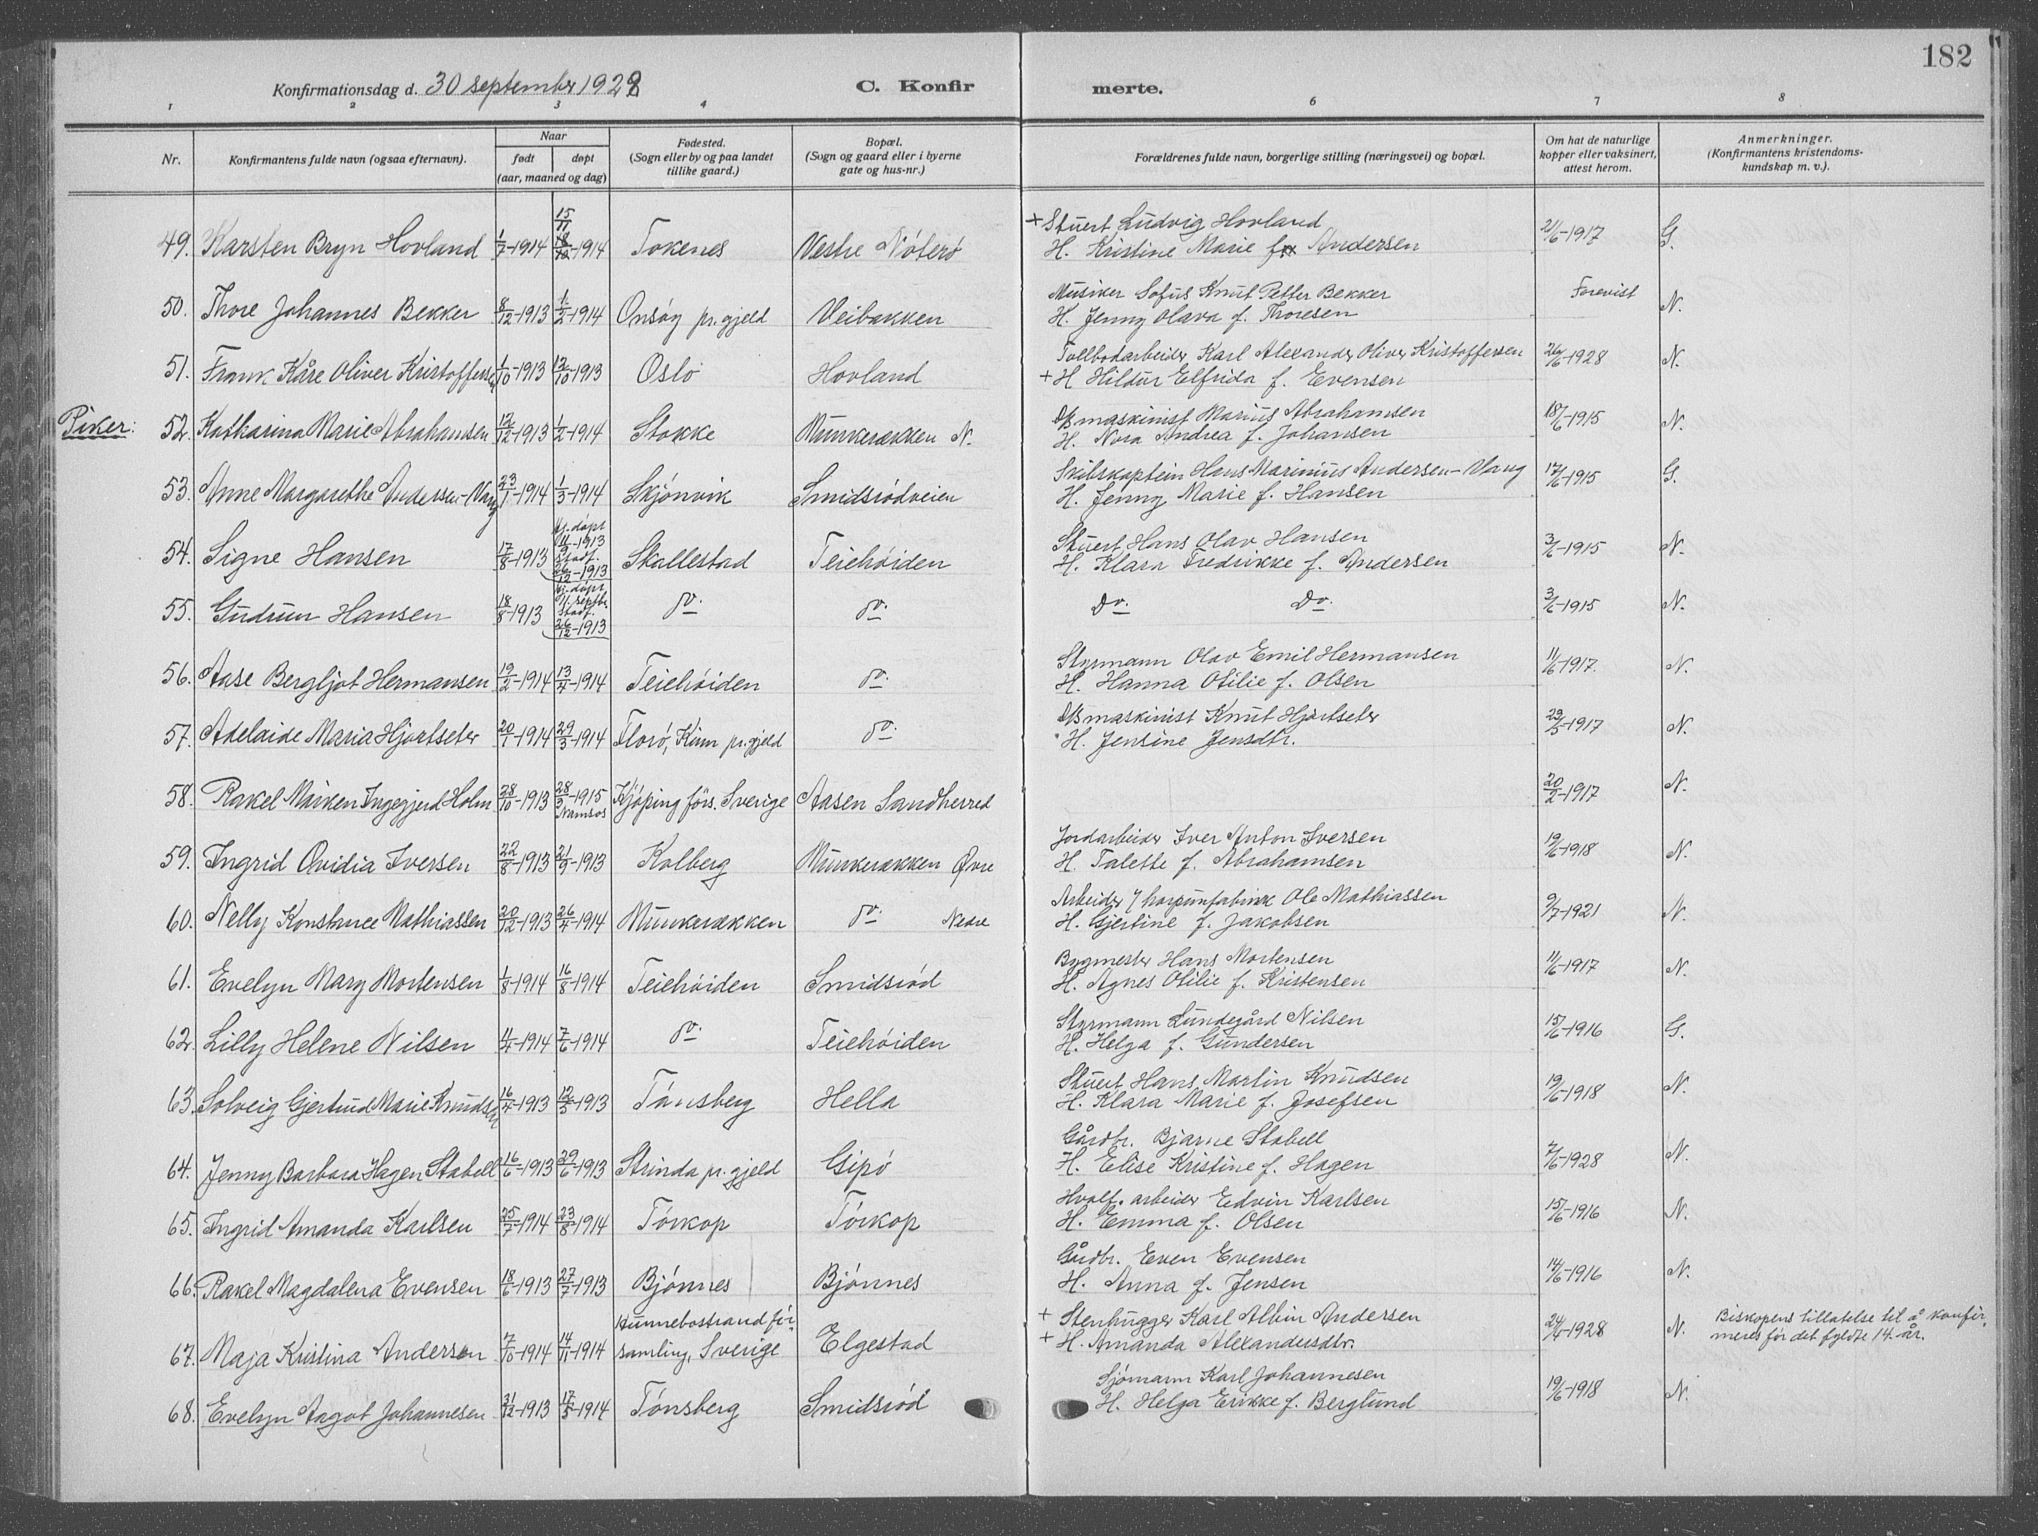 182
Konfirmationsdag d. 30 september 1928
C. Konfir merte.
1 2 3 4 6 7 8
Nr.
Konfirmantens fulde navn (ogsaa efternavn).
Naar
født døpt
(aar, maaned og dag)
Fødested.
(Sogn eller by og paa landet
tillike gaard.)
Bopæl.
(Sogn og gaard eller i byerne
gate og hus-nr.)
Forældrenes fulde navn, borgerlige stilling (næringsvei) og bopæl.
Om hat de naturlige
kopper eller vaksinert,
attest herom.
Anmerkninger.
(Konfirmantens kristendoms-
kundskap m. v.).
15/11
+ Stuert Ludvig Hovland
49. Karsten Bryn Hovland 1/7-1914 18/12-1914 Tokenes Vestre Nøterø H. Kristine Marie f. Andersen 21/6-1917 G.
Musiker Sofus Knut Petter Bekker Forevist
50. Thore Johannes Bekker 8/12-1913 1/2-1914 Onsøy pr.gjeld Veibakken H. Jenny Olava f. Thoresen N.
Tollbodarbeider Karl Alexander Oliver Kristoffersen
51. Frank Kåre Oliver Kristoffersen 1/10-1913 12/10-1913 Oslo Hovland + H Hildur Elfrida f. Evensen 26/6-1928 N.
D/S maskinist Marius Abrahamsen
Piker: 52. Katharina Marie Abrahamsen 12/12-1913 1/2-1914 Stokke Munkerekken N. H. Nora Andrea f. Johansen 18/6-1915 N.
Skibskaptein Hans Marinius Andersen-Vang
53. Anne Margarethe Andersen-Vang 23/1-1914 1/3-1914 Skjønvik Smidsrødveien H. Jenny Marie f. Hansen 17/6-1915 G.
hj. døpt
11/9-1913
stadf.
Stuert Hans Olav Hansen
54. Signe Hansen 17/8-1913 26/12-1913 Skallestad Teiehøiden H. Klara Fredrikke f. Andersen 3/6-1915 N.
hj. døpt
11. septbr.
stadf.
55. Gudrun Hansen 18/8-1913 26/12-1913 do. do. Do. Do. 3/6-1915 N.
Styrmann Olav Emil Hermansen
56. Aase Bergljot Hermansen 19/2-1914 13/4-1914 Teiehøiden do. H. Hanna Otilie f. Olsen 11/6-1917. N.
D/S maskinist Knut Hjortseter
57. Adelaide Maria Hjortseter 20/1-1914 29/3-1914 Florø, Kinn pr.gjeld do. H. Jensine Jensdtr. 23/5-1917 N.
58. Rakel Maiken Ingegjerd Holm 28/10-1913 28/2-1915 Namsos Kjøping förs. Sverige Aasen Sandherred 20/2-1917 N.
Jordarbeider Iver Anton Iversen
59. Ingrid Ovidia Iversen 22/8-1913 21/9-1913 Kolberg Munkerekken Øvre H. Talette f. Abrahamsen 19/6-1918 N.
Arbeider v/ harpunfabrikk Ole Mathiassen
60. Nelly Konstance Mathiassen 20/12-1913 26/4-1914 Munkerekken do. Nedre H. Gjertine f. Jakobsen 9/7-1921 N.
Bygmester Hans Mortensen
61. Evelyn Mary Mortensen 1/8-1914 16/8-1914 Teiehøiden Smidsrød H. Agnes Otilie f. Kristensen 11/6-1917 N.
Styrmann Lundegård Nilsen
62. Lilly Helene Nilsen 4/4-1914 7/6-1914 do. Teiehøiden H. Helga f. Gundersen 15/6-1916 G.
Stuert Hans Martin Knudsen
63. Solveig Gjertrud Marie Knudsen 16/4-1913 12/5-1913 Tønsberg Hella H. Klara Marie f. Josefsen 19/6-1918 N.
Gårdbr. Bjarne Stabell
64. Jenny Barbara Hagen Stabell 16/6-1913 29/6-1913 Strinda pr.gjeld Gipø H. Elise Kristine f. Hagen 7/6-1928 N.
Hvalf. arbeider Edvin Karlsen
65. Ingrid Amanda Karlsen 25/7-1914 23/8-1914 Torkop Torkop H. Emma f. Olsen 15/6-1916 N.
Gårdbr. Even Evensen
66. Rakel Magdalena Evensen 18/6-1913 27/7-1913 Bjønnes Bjønnes H. Anna f. Jensen 14/6-1916 N.
Hunnebostrand för- + Stenhugger Karl Albin Andersen Biskopens tillatelse til å konfir-
67. Maja Kristina Andersen 7/10-1914 14/11-1914 samling, Sverige Elgestad + H. Amanda Alexandersdtr. 24/6-1928 N. meres før det fyldte 14. år.
Sjømann Karl Johannesen
68. Evelyn Aagot Johannesen 31/12-1913 17/5-1914 Tønsberg Smidsrød H. Helga Erikke f. Berglund 19/6-1918 N.